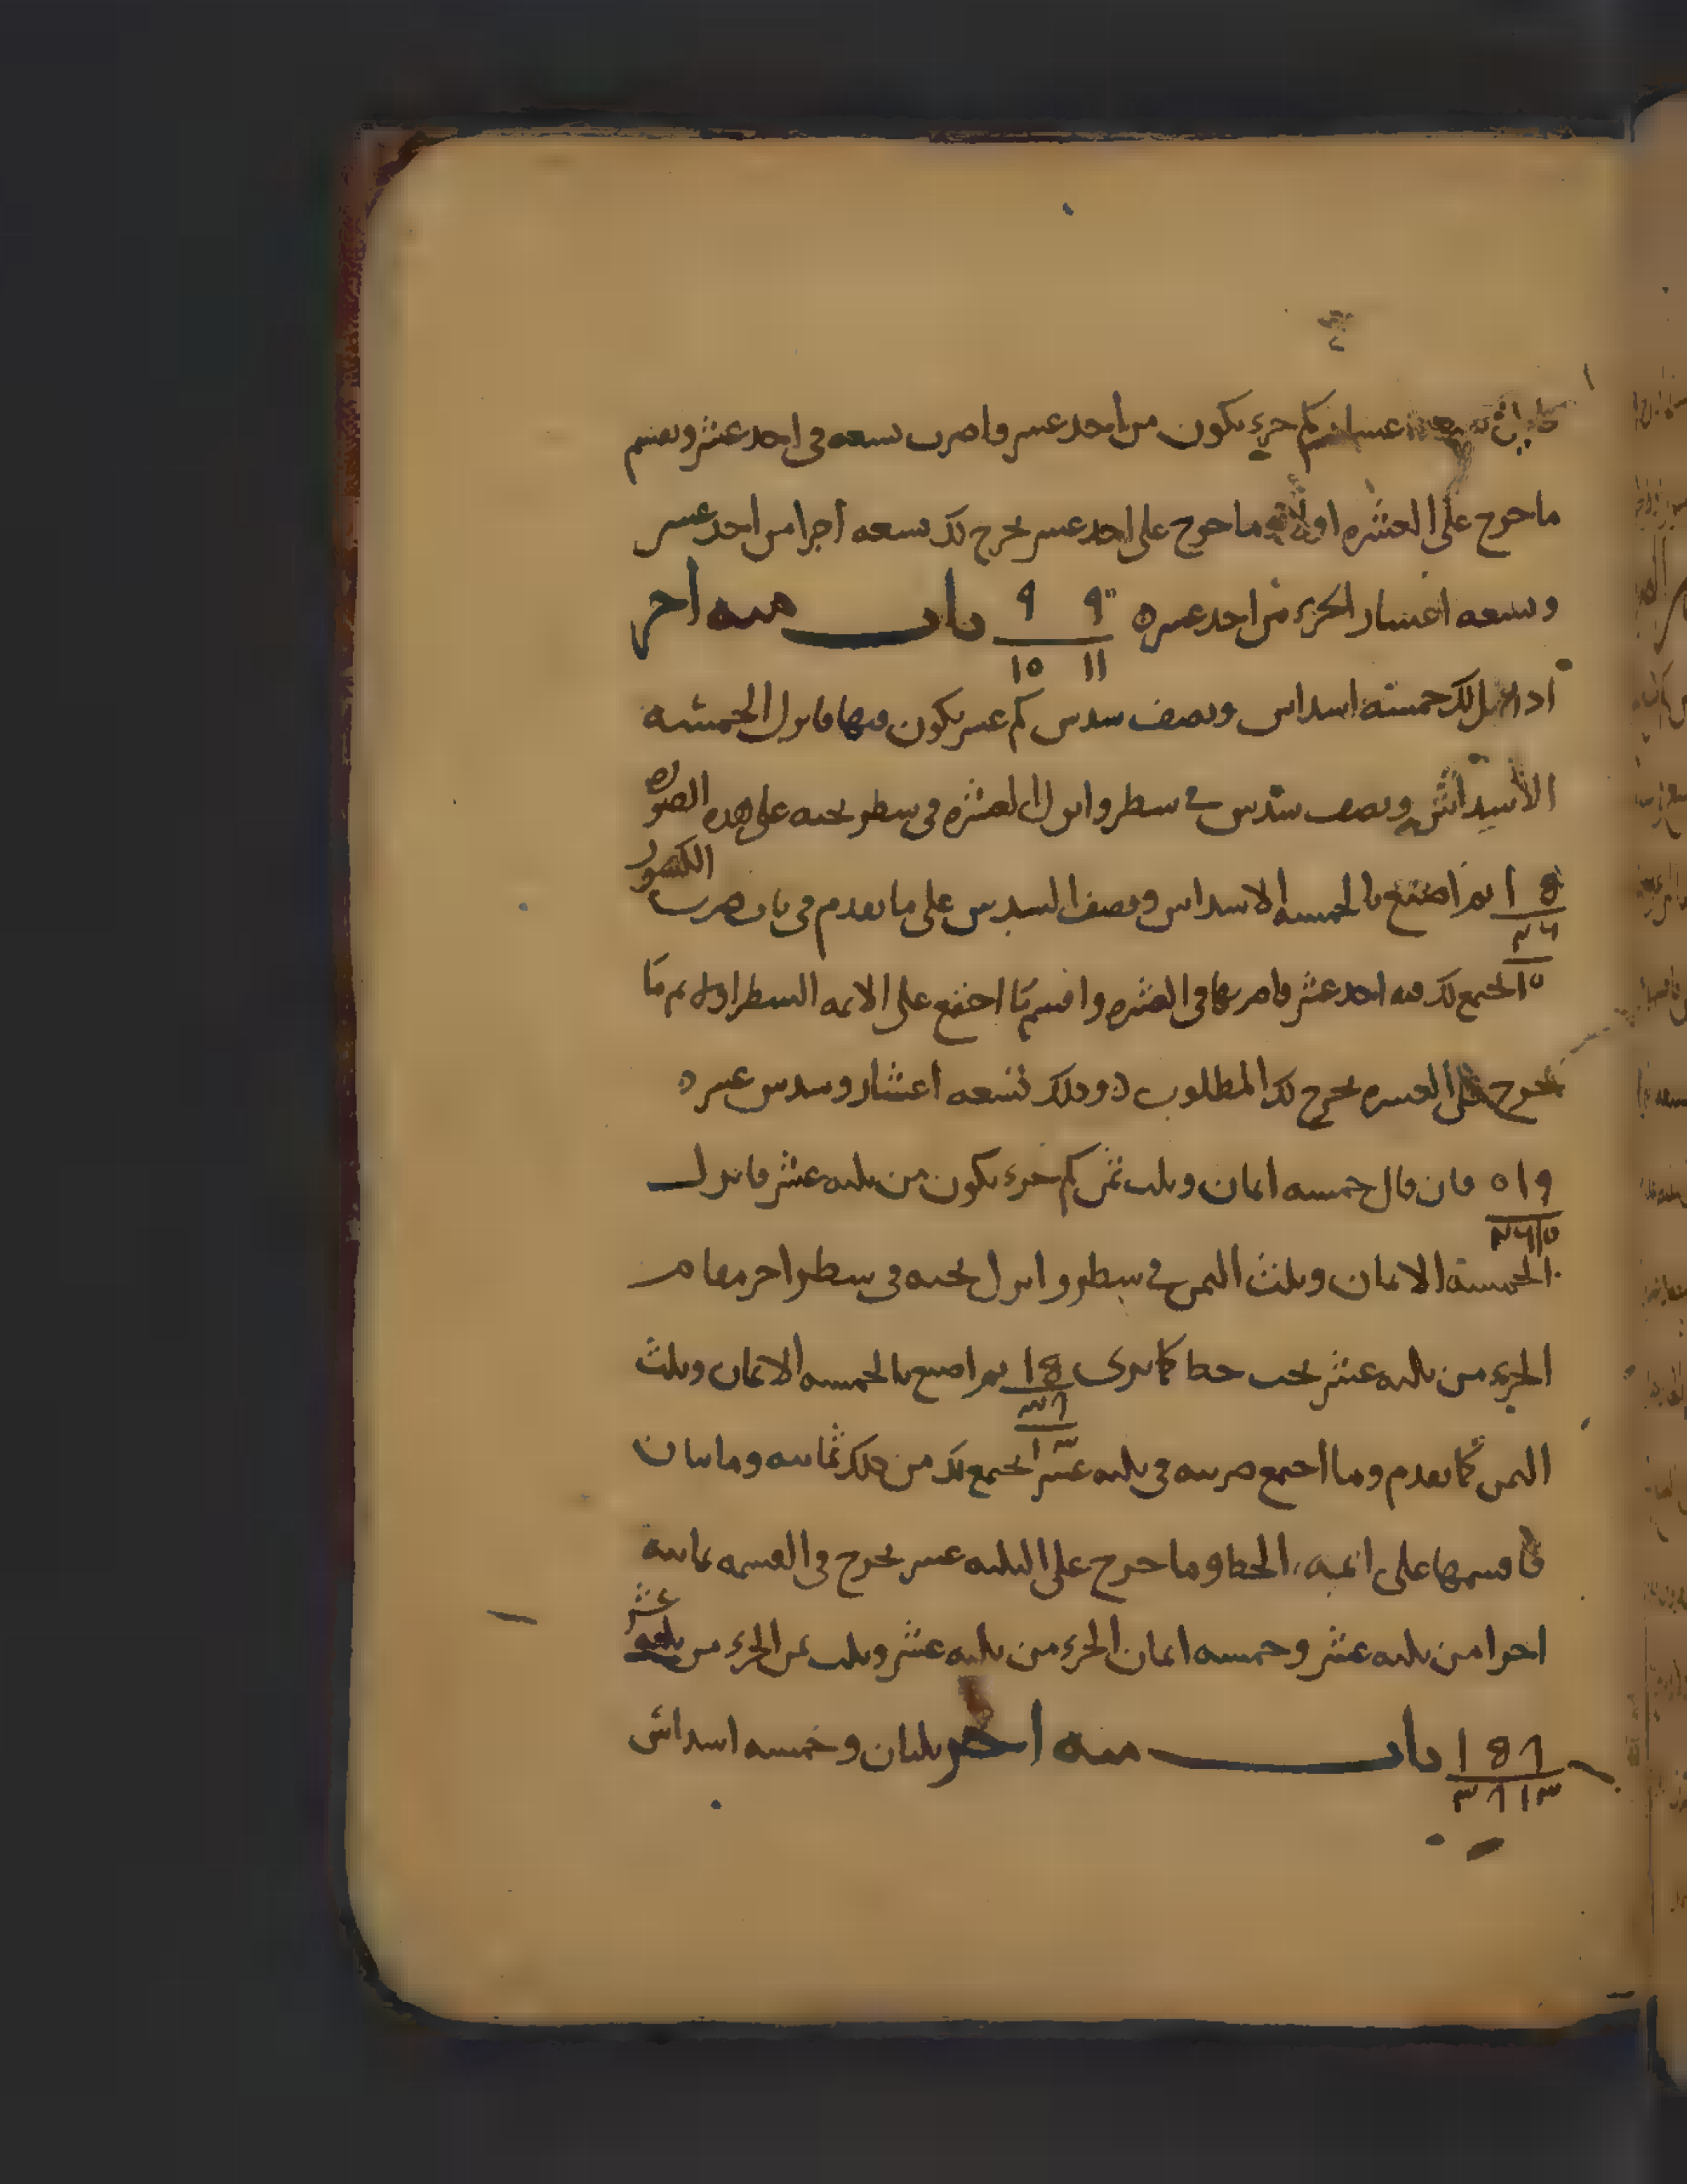 اعشار كم جزء يكون من احد عشر فاضرب تسعه في احد عشر وتقسم
ما خرج على العشره اولا وما خرج على احد عشر يخرج لك تسعه اجزا من احد عشر
وتسعه اعشار الجزء من احد عشر ٩ ٩ / ١٥ ١١ باب منه اخر
اذا قيل لك خمسة اسداس ونصف سدس كم عشر يكون فيها فانزل الخمسة
الاسداس ونصف سدس في سطر وانزل العشره في سطر تحته على هذه الصوره
ثم اصنع بالخمسه الاسداس ونصف السدس على ما تقدم في باب ضرب الكسور
يجتمع لك منه احد عشر فاضربها في العشره واقسم ما اجتمع على الايمه السطر اولا ثم ما
يخرج على العشره يخرج لك المطلوب وذلك تسعه اعشار وسدس عشر
فان قال خمسه اثمان وثلث ثمن كم جزء يكون من ثلثه عشر فانزل
الخمسة الاثمان وثلث الثمن في سطر وانزل تحته في سطر اخر مقام
الجزء من ثلثه عشر تحت خط كما ترى ثم اصنع بالخمسه الاثمان وثلث
الثمن كما تقدم وما اجتمع ضربته في ثلثه عشر يجتمع لك من ذلك ثمانيه ومايتان
فاقسمها على ايمه الخط وما خرج على الثلثه عشر يخرج في القسمه ثمانية
اجزا من ثلثه عشر وخمسه اثمان الجزء من ثلثه عشر وثلث ثمن الجزء من ثلثه عشر
باب منه اخر ثلثان وخمسه اسداس